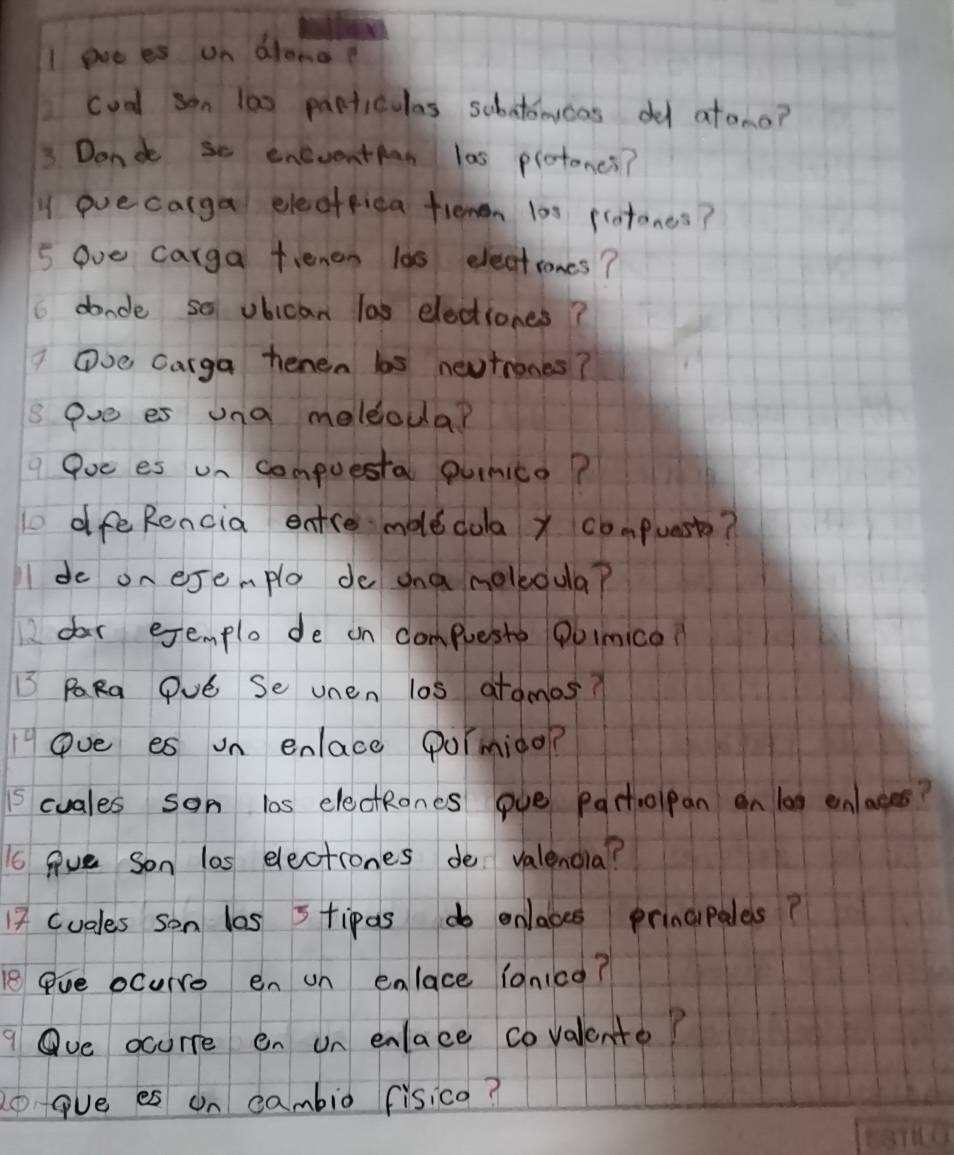 1 que es un átomo?
2 cual son las particulas subatómicas del atomo?
3 Donde se encuentran los protones?
4 que carga electrica tienen los protones?
5 Que carga tienen los electrones?
6 donde se ubican los electrones?
7 Que carga tienen los neutrones?
8 Que es una molécula?
9 Que es un compuesta Quimico?
10 diferencia entre molécula y compuesto?
11 de un ejemplo de una molecula?
12 dar ejemplo de un compuesto Quimico?
13 PaRa Qué se unen los atomos?
14 Que es un enlace Quimico?
15 cuales son los electRones que participan en los enlaces?
16 Que son los electrones de valencia?
17 Cuales son las 3 tipas de enlaces principales?
18 Que ocurre en un enlace ionico?
9 Que ocurre en un enlace covalente?
20 que es un cambio físico?
ESTILO